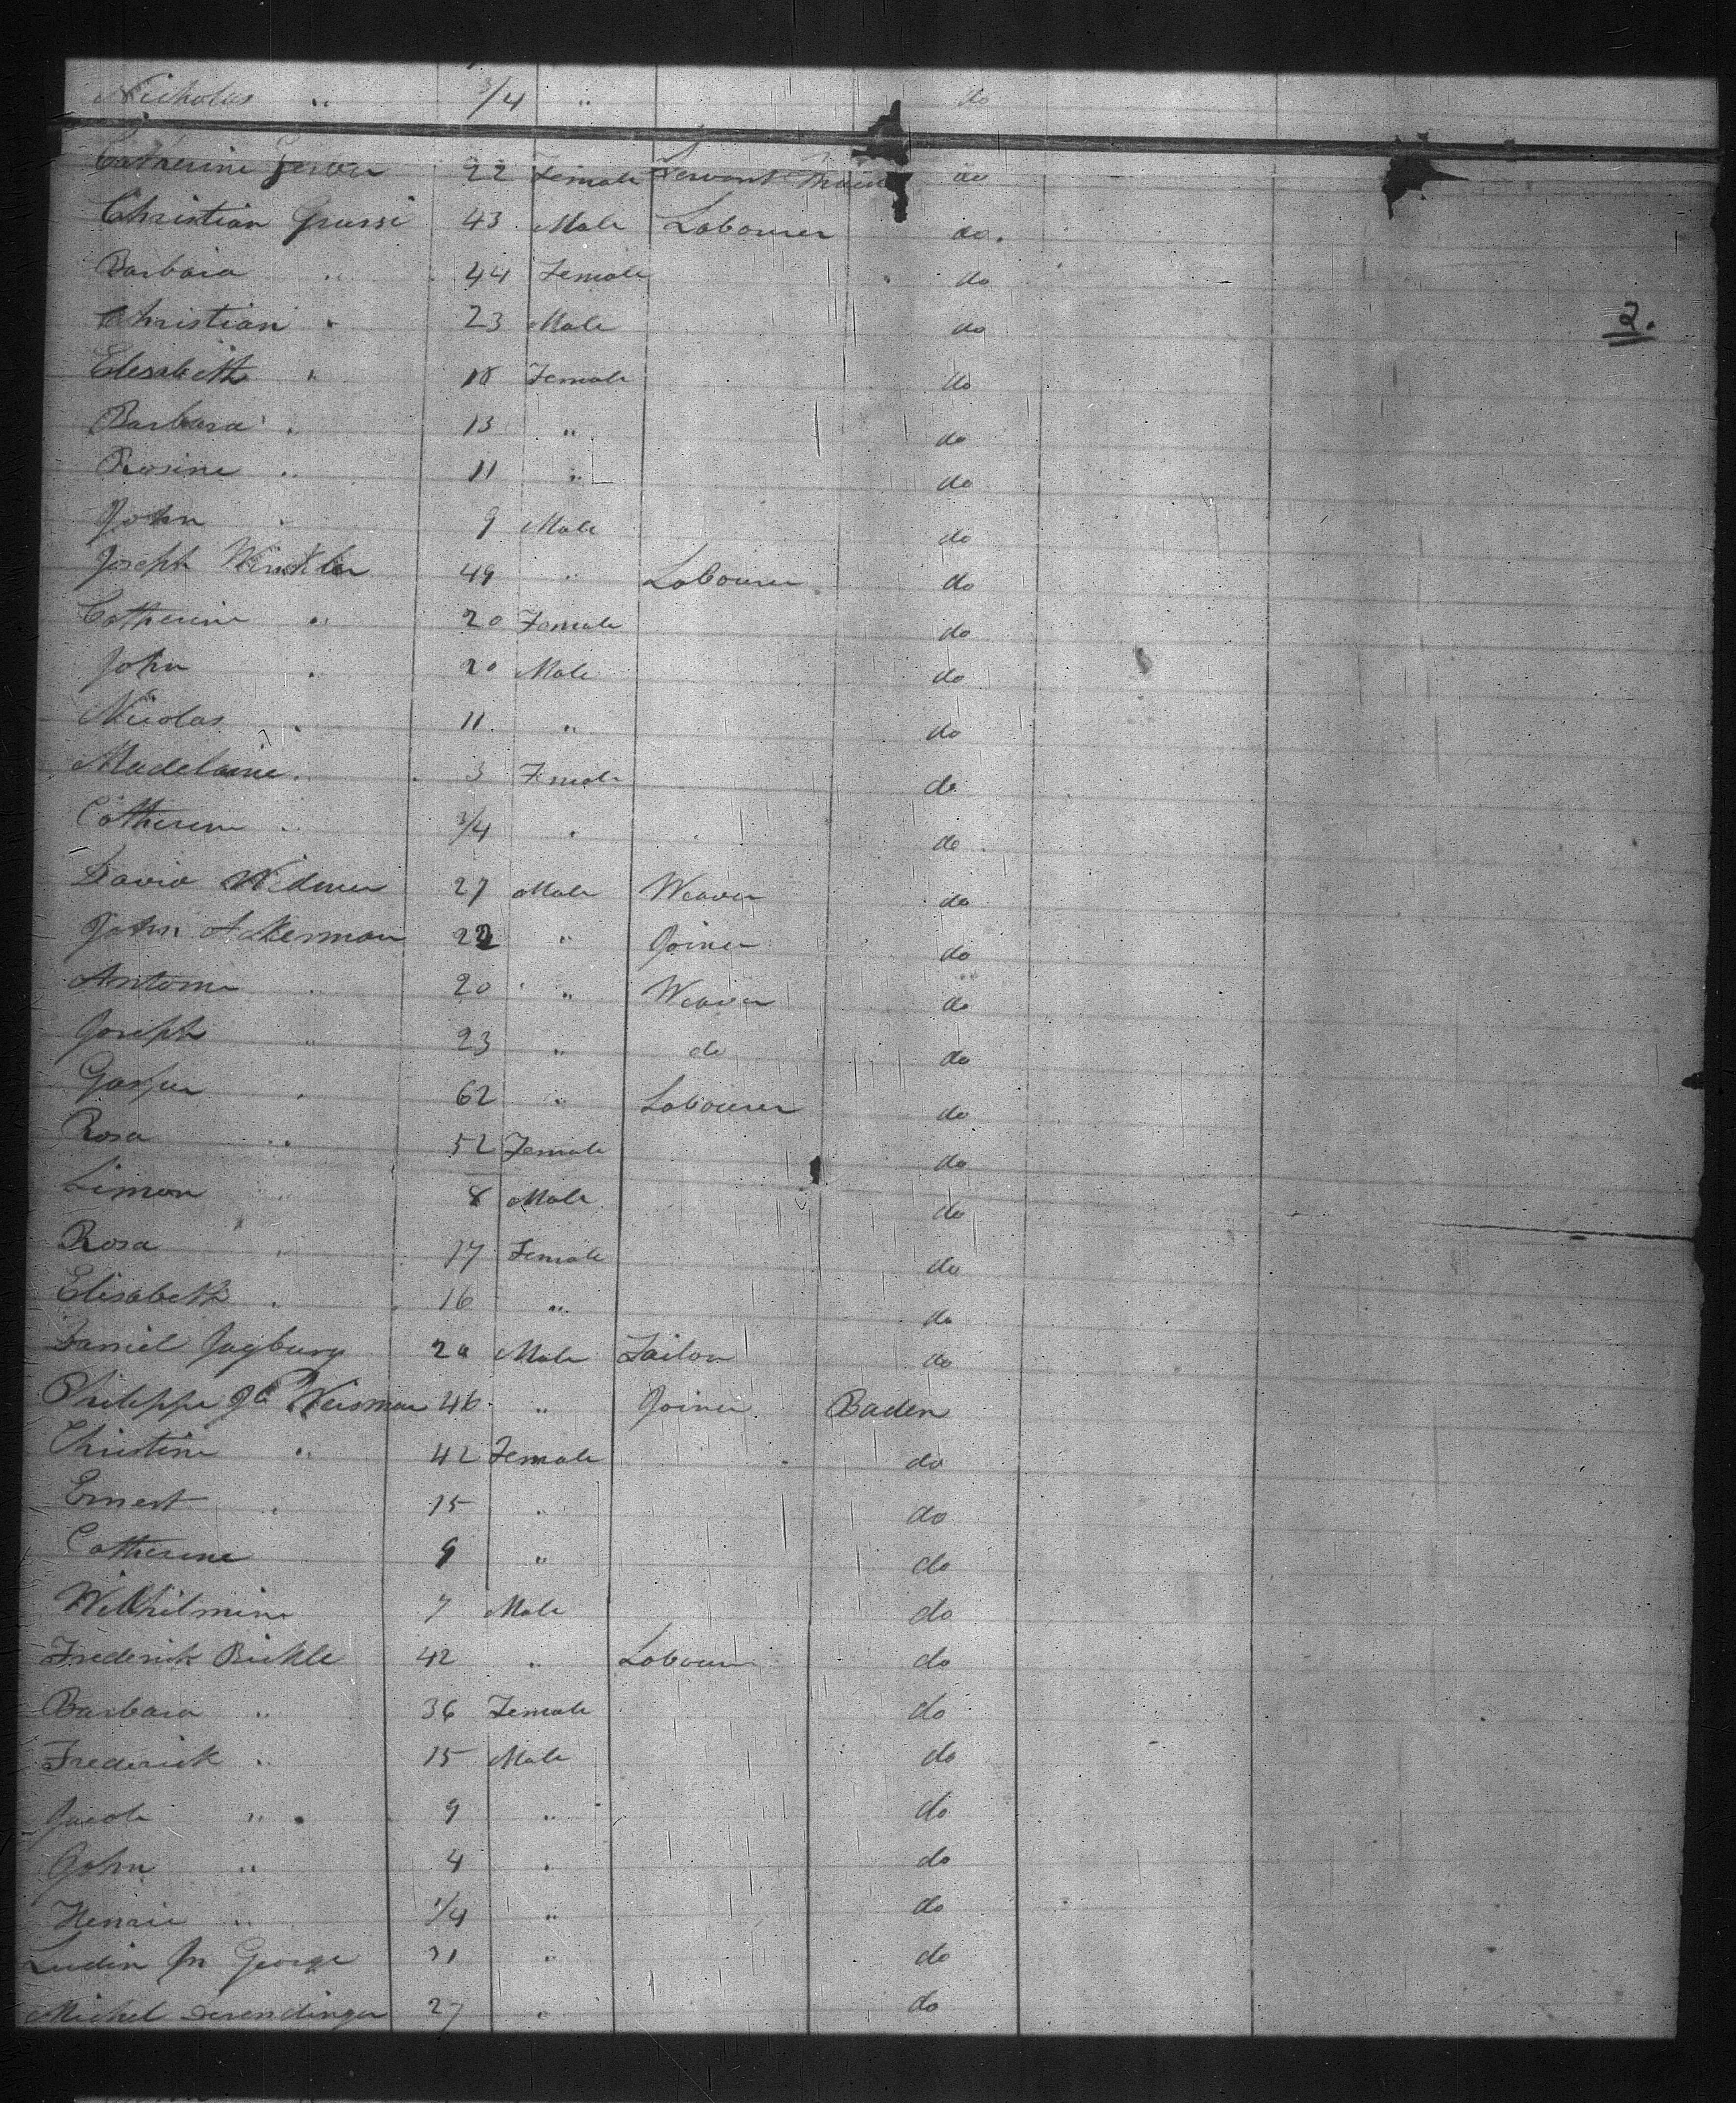 Nicholas " 3/4 " do
Catherine Gerber 22 Female Servant Maid do
Christian Grussi 43 Male Labourer do.
Barbara " 44 Female do
Christian " 23 Male do
2.
Elisabeth " 18 Female do
Barbara " 13 " do
Rosine " 11 " do
John " 9 Male do
Joseph Winkler 49 " Labourer do
Catherine " 20 Female do
John " 20 Male do
Nicolas " 11 " do
Madelaine " 3 Female do
Catherine " 3/4 " do
David Widmer 27 Male Weaver do
John Akerman 22 " Joiner do
Antome " 20 " Weaver do
Joseph " 23 " do do
Gasper " 62 " Labourer do
Rosa " 52 Female do
Simon " 8 Male do
Rosa " 17 Female do
Elisabeth " 16 " do
Daniel Jagburg Male Tailor do
Philippe Jb Weisman 46 " Joiner Baden
Christine " 42 Female do
Ernest " 15 " do
Catherine 9 " do
Wilhilmine 7 Male do
Frederick Bickle 42 " Labourer do
Barbara " 36 Female do
Frederick " 15 Male do
Jacob " 9 " do
John " 4 " do
Henrie " 1/4 " do
Ludin Jn George 31 " do
Michel Derendinger 27 " do